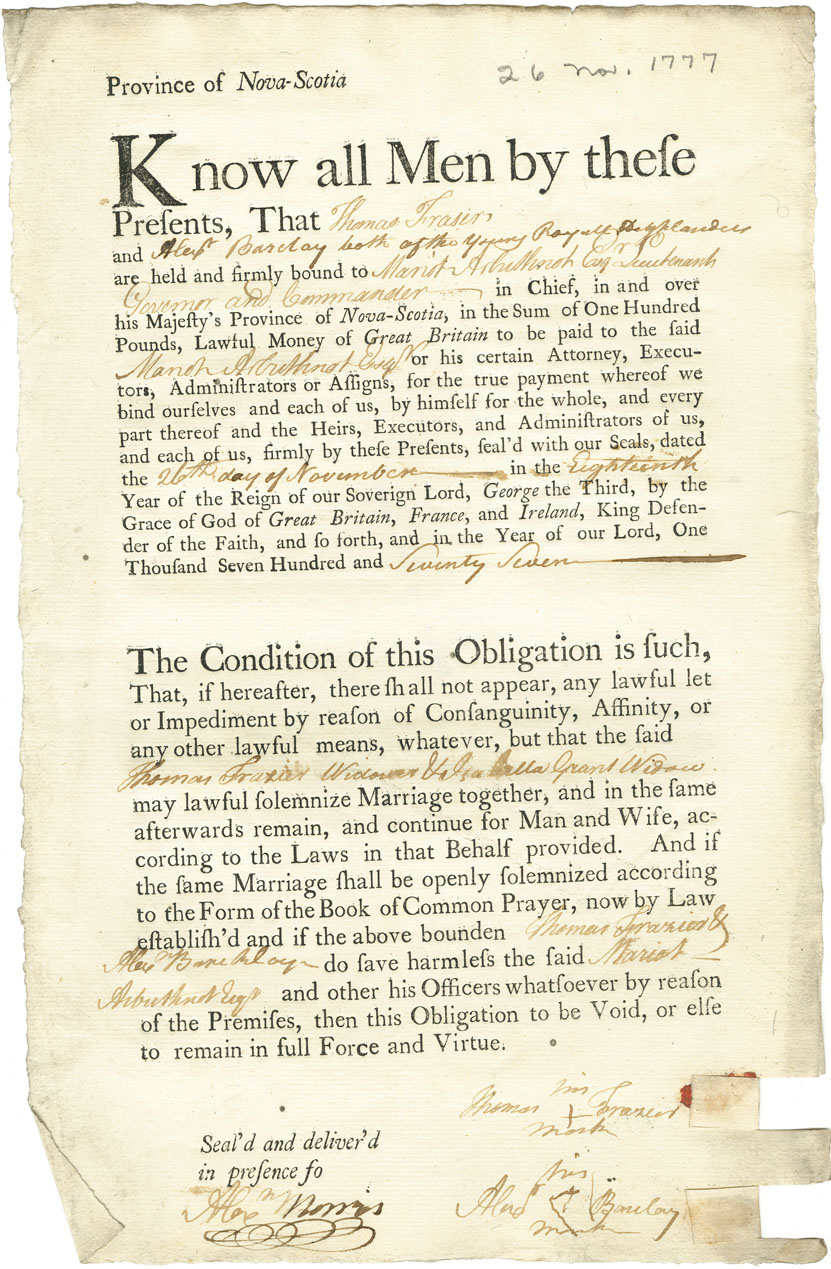 26 Nov. 1777
Province of Nova-Scotia
Know all Men by theſe
Preſents, That Thomas Fraser
and Alexr Barclay both of the Young Royall Highlanders
are held and firmly bound to Mariot Arbuthnot Esqr Lieutenant
Governor and Commander in Chief, in and over
his Majeſty's Province of Nova-Scotia, in the Sum of One Hundred
Pounds, Lawful Money of Great Britain to be paid to the ſaid
Mariot Arbuthnot Esqr or his certain Attorney, Execu-
tors, Adminiſtrators or Aſſigns, for the true payment whereof we
bind ourſelves and each of us, by himſelf for the whole, and every
part thereof and the Heirs, Executors, and Adminiſtrators of us,
and each of us, firmly by theſe Preſents, ſeal'd with our Seals, dated
the 26th day of November in the Eighteenth
Year of the Reign of our Soverign Lord, George the Third, by the
Grace of God of Great Britain, France, and Ireland, King Defen-
der of the Faith, and ſo forth, and in the Year of our Lord, One
Thouſand Seven Hundred and Seventy Seven
The Condition of this Obligation is ſuch,
That, if hereafter, there ſhall not appear, any lawful let
or Impediment by reaſon of Conſanguinity, Affinity, or
any other lawful means, whatever, but that the ſaid
Thomas Frazier Widower & Isabella Grant Widow
may lawful ſolemnize Marriage together, and in the ſame
afterwards remain, and continue for Man and Wife, ac-
cording to the Laws in that Behalf provided. And if
the ſame Marriage ſhall be openly ſolemnized according
to the Form of the Book of Common Prayer, now by Law
eſtabliſh'd and if the above bounden Thomas Frazier &
Alexr Barcklay do ſave harmleſs the ſaid Mariot
Arbuthnot Esqr and other his Officers whatſoever by reaſon
of the Premiſes, then this Obligation to be Void, or elſe
to remain in full Force and Virtue.
his
Thomas + Frazier
mark
Seal'd and deliver'd
in preſence fo
Alexr Morris
his
Alexr Barclay
mark